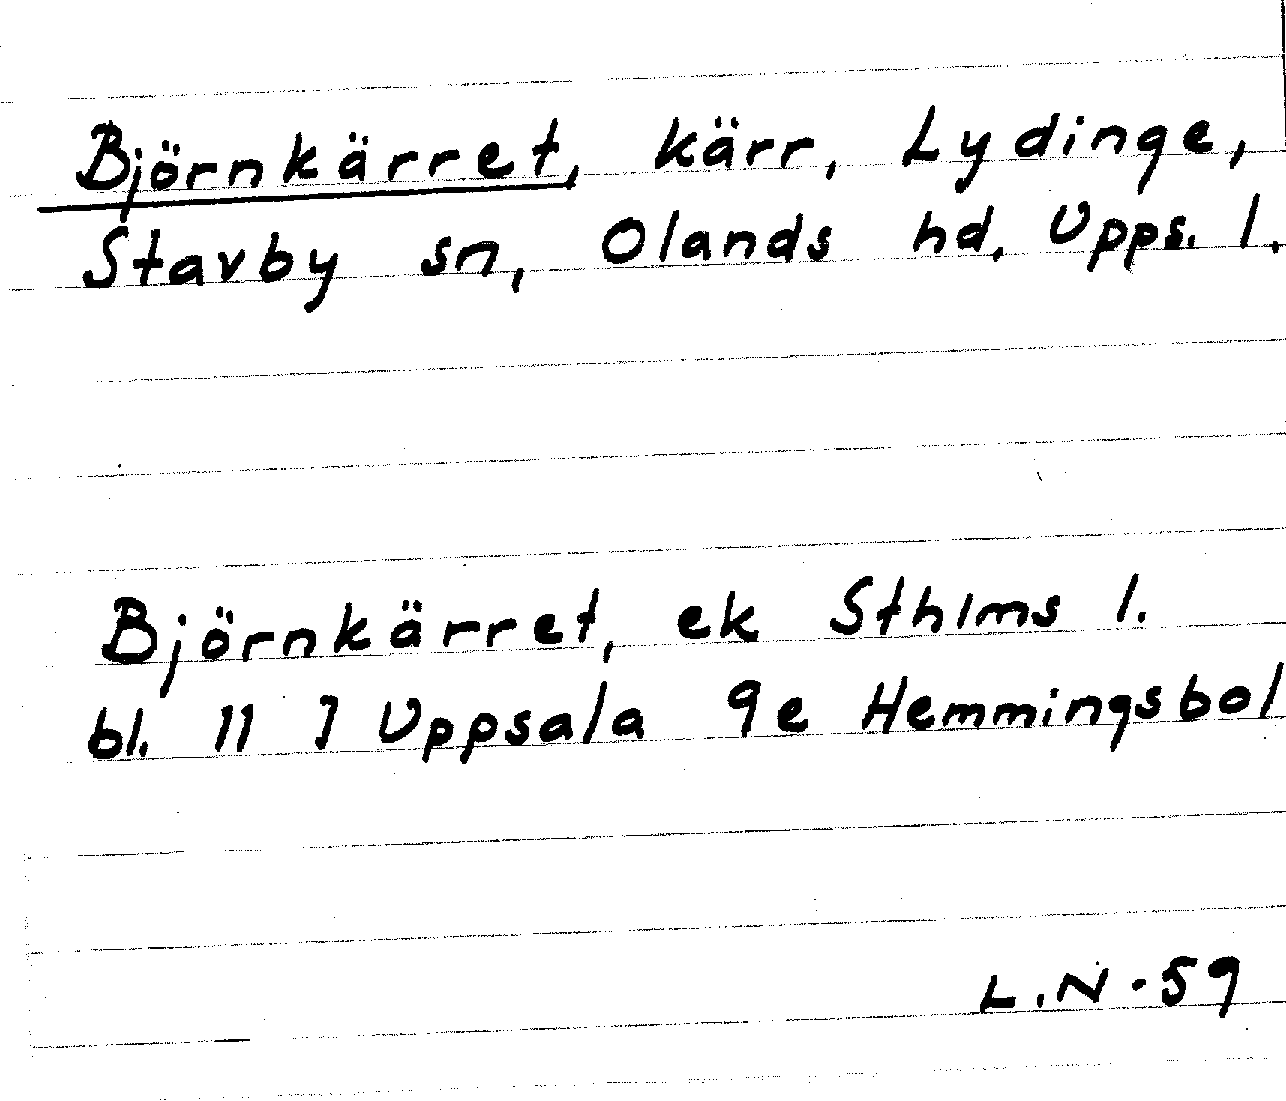 Björnkärret, kärr, Lydinge,
Stavby sn, Olands hd, Upps. l.
Björnkärret, ek Sthlms l.
bl. 11 I Uppsala 9e Hemmingsbol
L.N-59